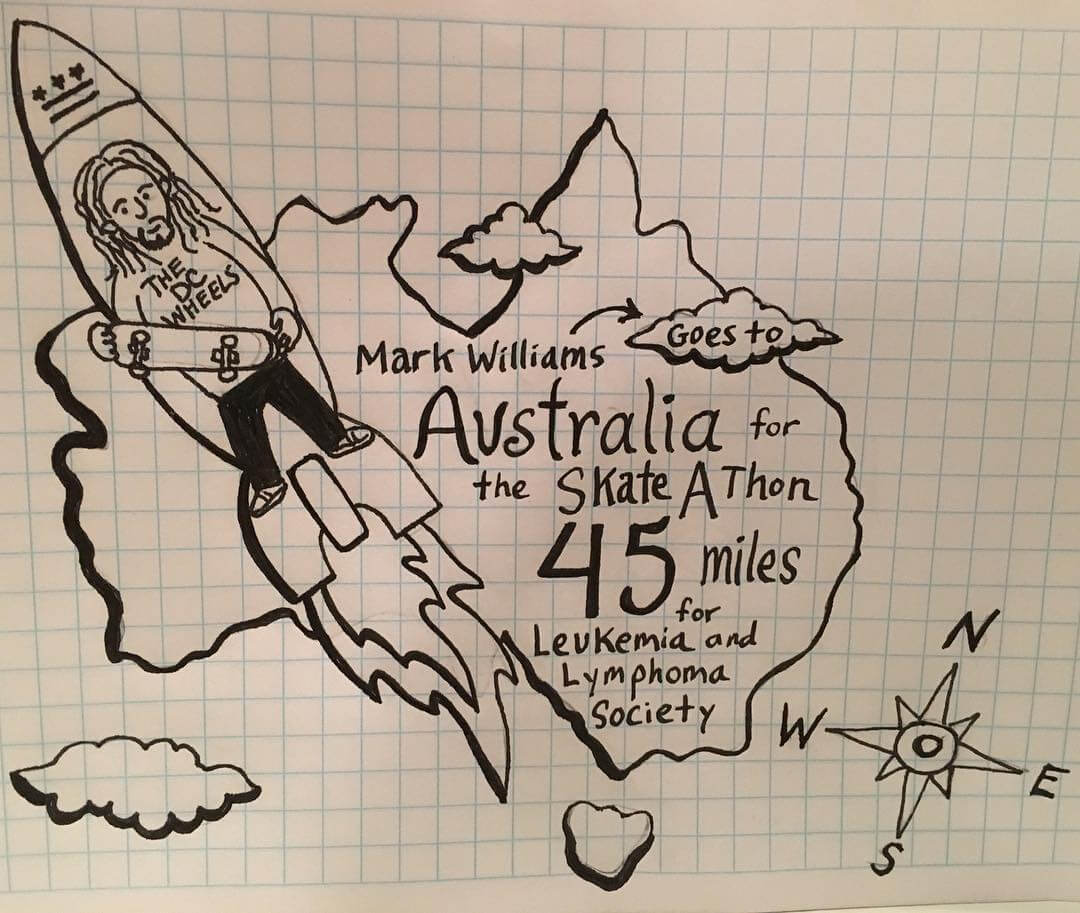 THE
DC
WHEELS
Mark Williams
Goes to
Australia for
the Skate A Thon
45 miles
for
Leukemia and
Lymphoma
Society
N
W
E
S